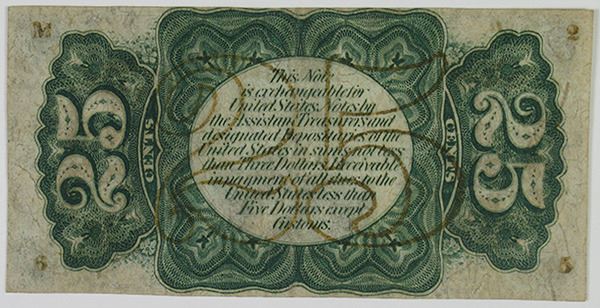 M 2
25 CENTS
This Note
is exchangeable for
United States Notes by
the Assistant Treasurers and
designated Depositaries of the
United States in sums not less
than Three Dollars. Receivable
in payment of all dues to the
United States less than
Five Dollars except
Customs.
CENTS 25
25
6 5